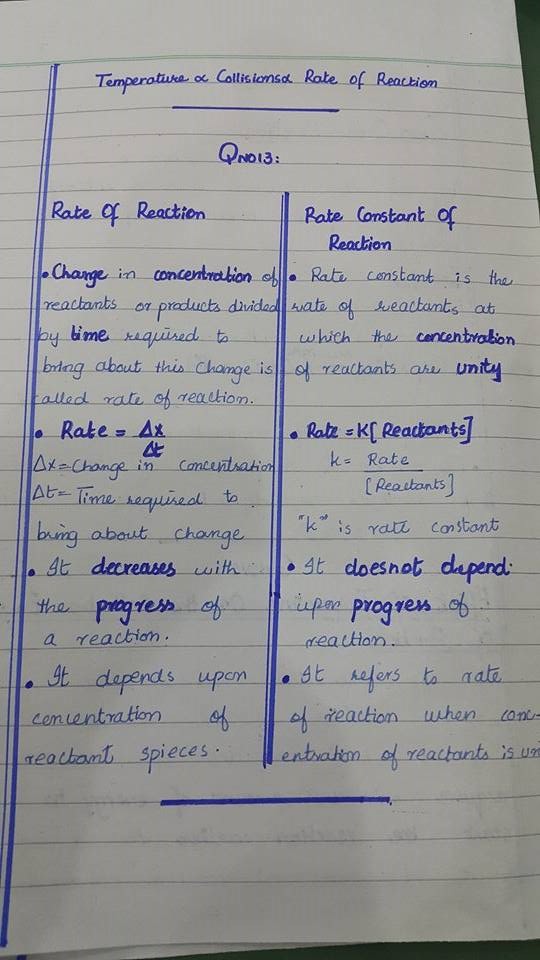 Temperature ∝ Collisions ∝ Rate of Reaction
QNO13:
Rate Of Reaction
• Change in concentration of
reactants or products divided
by time required to
bring about this change is
called rate of reaction.
• Rate = Δx
Δt
Δx=Change in concentration
Δt=Time required to
bring about change
• It decreases with
the progress of
a reaction.
• It depends upon
concentration of
reactant spieces.
Rate Constant Of
Reaction
• Rate constant is the
rate of reactants at
which the concentration
of reactants are unity
• Rate = K[Reactants]
k = Rate
[Reactants]
"k" is rate constant
• It doesnot depend.
upon progress of
reaction.
• It refers to rate
of reaction when conc-
entration of reactants is un